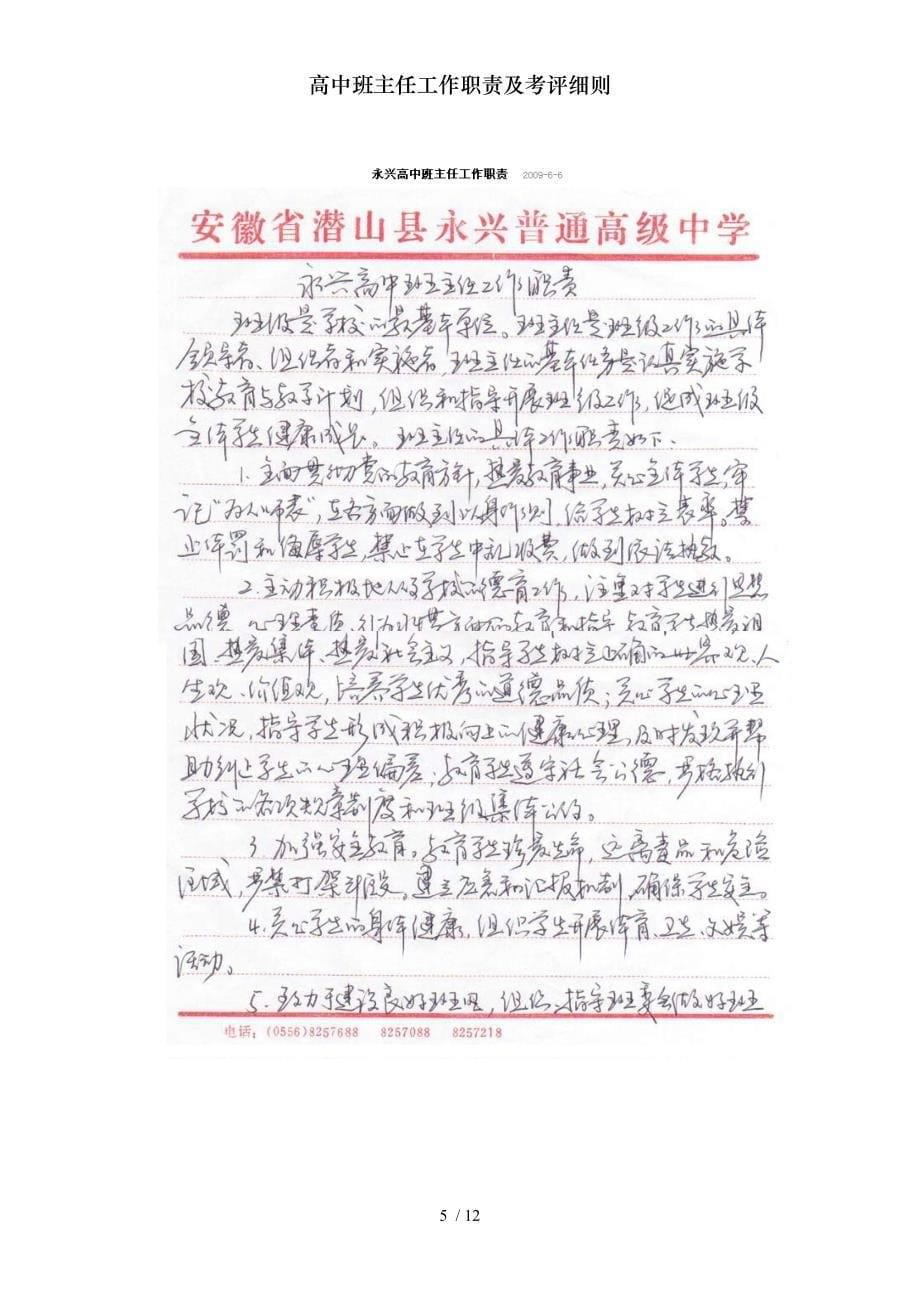 高中班主任工作职责及考评细则
永兴高中班主任工作职责 2009-6-6
安徽省潜山县永兴普通高级中学
永兴高中班主任工作职责
班级是学校的最基本单位。班主任是班级工作的具体
领导者、组织者和实施者，班主任的基本任务是认真实施学
校教育与教学计划，组织和指导开展班级工作，促成班级
全体学生健康成长。班主任的具体工作职责如下：
1.全面贯彻党的教育方针，热爱教育事业，关心全体学生，牢
记“为人师表”，在各方面做到以身作则，给学生树立表率。禁
止体罚和侮辱学生，禁止在学生中乱收费，做到依法执教。
2.主动积极地从事学校的德育工作，注重对学生进行思想
品德、心理素质、行为等方面的教育和指导，教育学生热爱祖
国、热爱集体、热爱社会主义，指导学生树立正确的世界观、人
生观、价值观，培养学生优秀的道德品质；关心学生的心理
状况，指导学生形成积极向上的健康心理，及时发现并帮
助纠正学生的心理偏差；教育学生遵守社会公德，严格执行
学校的各项规章制度和班级集体公约。
3.加强安全教育。教育学生珍爱生命，远离毒品和危险
区域，严禁打架斗殴。建立应急和汇报机制，确保学生安全。
4.关心学生的身体健康，组织学生开展体育、卫生、文娱等
活动。
5.致力于建设良好班风，组织、指导班委会做好班
电话：(0556)8257688 8257088 8257218
5 / 12